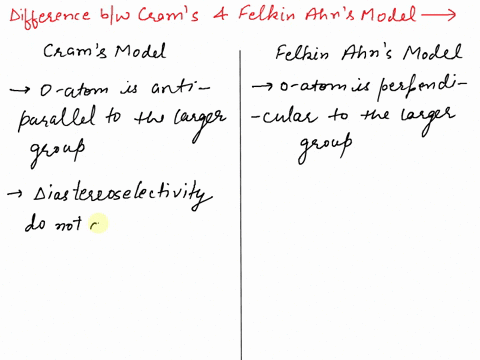 Difference b/w Cram's & Felkin Ahn's Model →
Cram's Model
→ O-atom is anti-
parallel to the larger
group
→ Diastereoselectivity
do not
Felkin Ahn's Model
→ O-atom is perpendi-
-cular to the larger
group